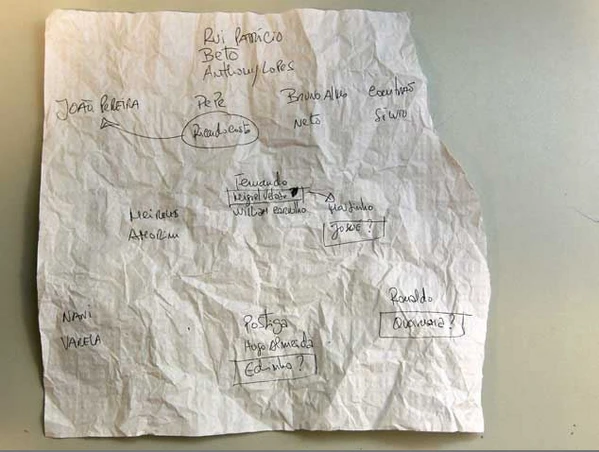 Rui Patrício
Beto
Anthony Lopes
João Pereira
Pepe
Bruno Alves
Coentrão
Ricardo Costa
Neto
Silvio
Fernando
Miguel Veloso
William Carvalho
Moutinho
Josué ?
Meireles
Amorim
Ronaldo
Quaresma ?
Nani
Varela
Postiga
Hugo Almeida
Edinho ?